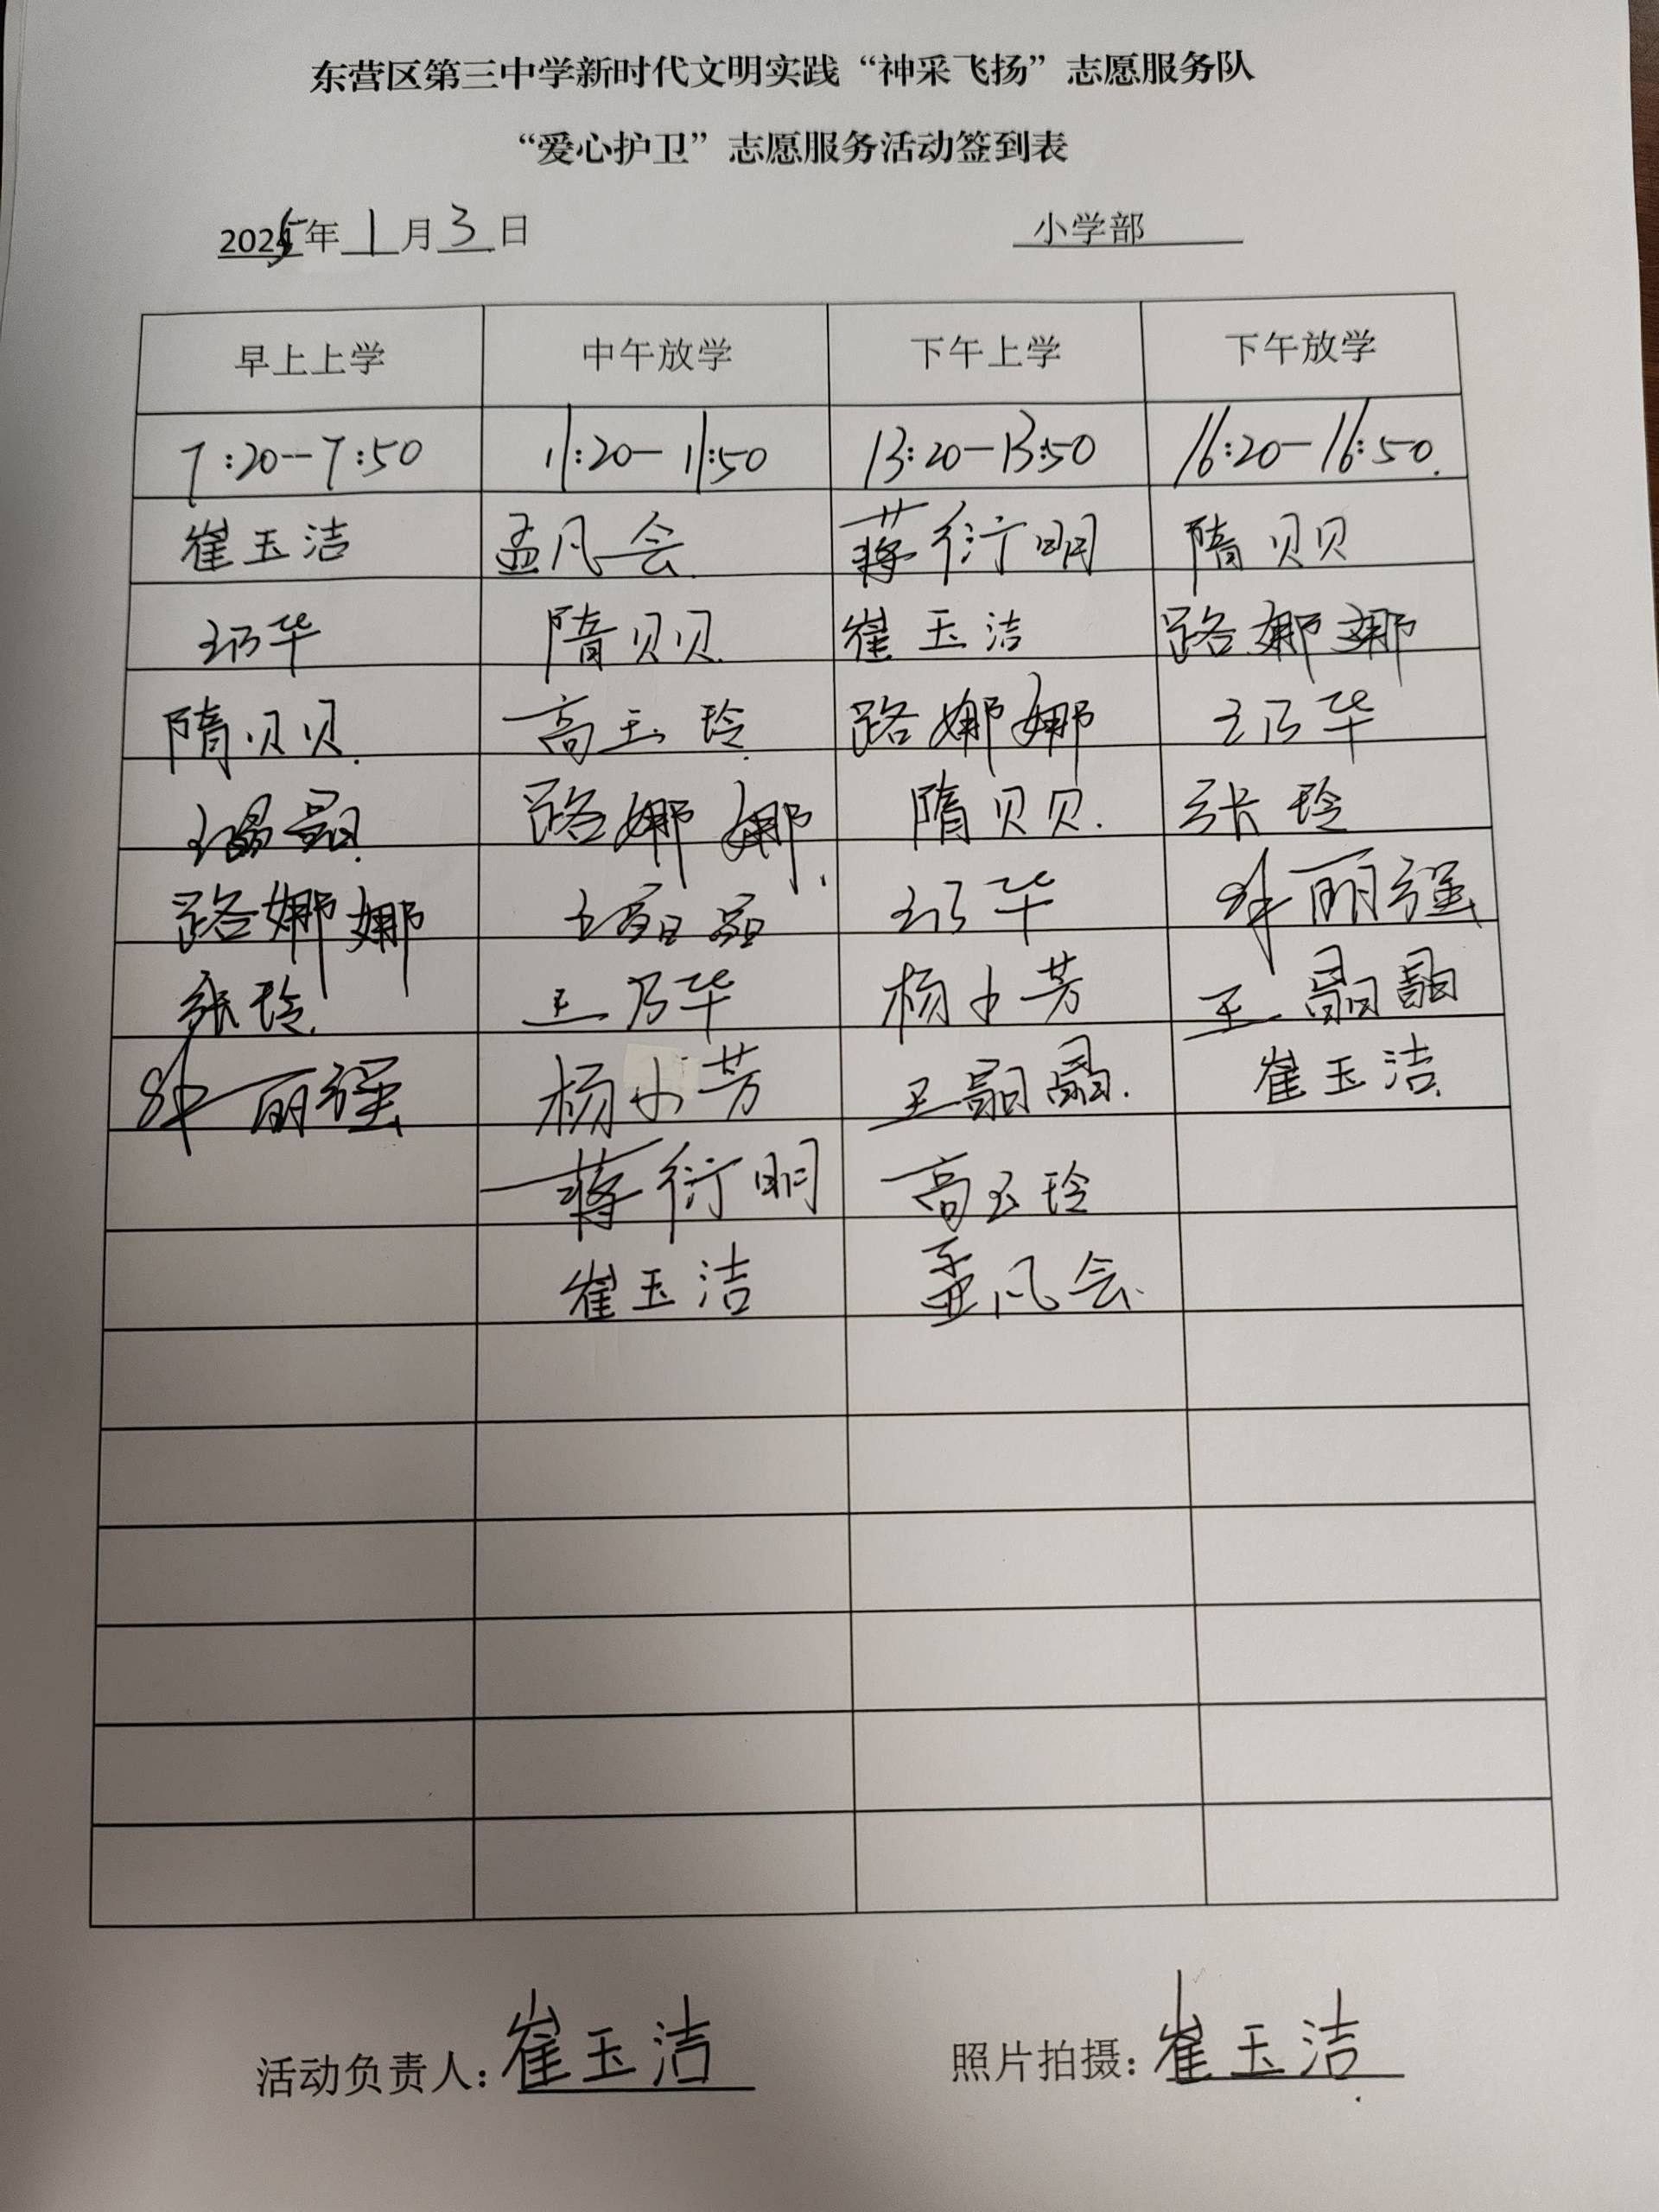 东营区第三中学新时代文明实践“神采飞扬”志愿服务队
“爱心护卫”志愿服务活动签到表
2025年1月3日 小学部
早上上学 中午放学 下午上学 下午放学
7:20--7:50 11:20-11:50 13:20-13:50 16:20-16:50.
崔玉洁 孟凡会 蒋衍明 隋贝贝
王乃华 隋贝贝 崔玉洁 路娜娜
隋贝贝 高玉玲 路娜娜 王乃华
王晶晶 路娜娜 隋贝贝 张玲
路娜娜 王晶晶 王乃华 丽强
张玲 王乃华 杨小芳 王晶晶
丽强 杨小芳 王晶晶 崔玉洁
蒋衍明 高玉玲
崔玉洁 孟凡会
活动负责人:崔玉洁 照片拍摄:崔玉洁